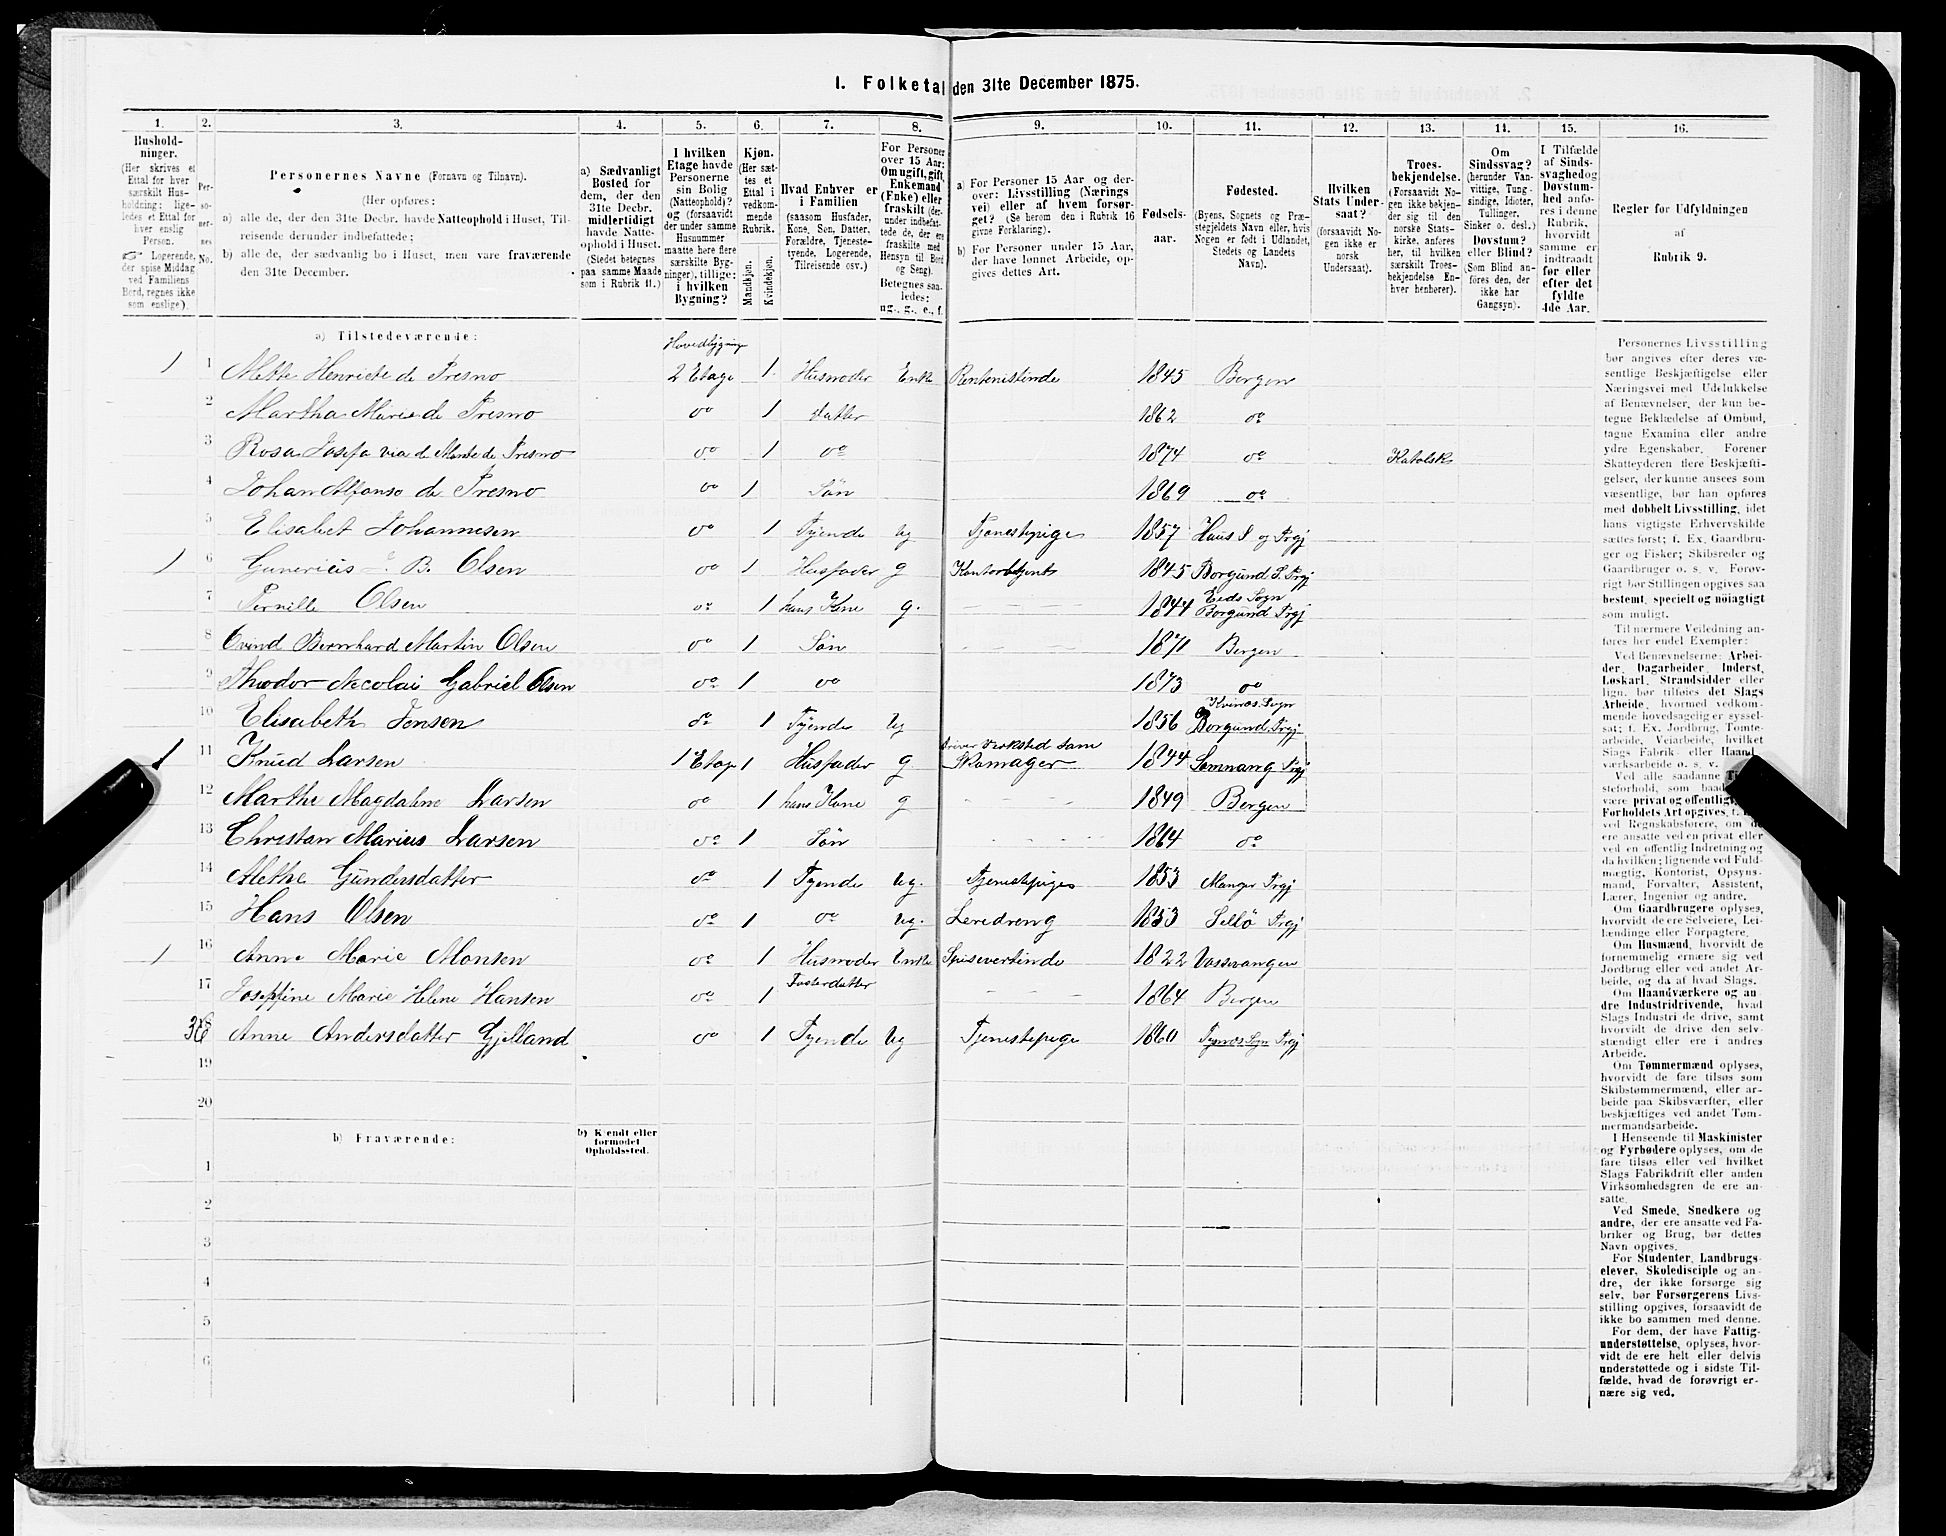 1. Folketal den 31te December 1875.
1. 2. 3. 4. 5. 6. 7. 8. 9. 10. 11. 12. 13. 14. 15. 16.
Hushold-
ninger.
(Her skrives et
Ettal for hver
særskilt Hus-
holdning; lige-
ledes et Ettal for
hver enslig
Person.
☞ Logerende,
der spise Middag
ved Familiens
Bord, regnes ikke
som enslige).
Per-
so-
ner-
nes
No.
Personernes Navne (Fornavn og Tilnavn).
(Her opføres:
a) alle de, der den 31te Decbr. havde Natteophold i Huset, Til-
reisende derunder indbefattede;
b) alle de, der sædvanlig bo i Huset, men vare fraværende
den 31te December.
a) Sædvanligt
Bosted for
dem, der den
31te Decbr.
midlertidigt
havde Natte-
ophold i Huset.
(Stedet betegnes
paa samme Maade
som i Rubrik 11.)
I hvilken
Etage havde
Personerne
sin Bolig
(Natteophold)?
og (forsaavidt
der under samme
Husnummer
maatte høre flere
særskilte Byg-
ninger), tillige:
i hvilken
Bygning?
Kjøn.
(Her sæt-
tes et
Ettal i
vedkom-
mende
Rubrik.
Mandkjøn.
Kvindekjøn.
Hvad Enhver er
i Familien
(saasom Husfader,
Kone, Søn, Datter,
Forældre, Tjeneste-
tyende, Logerende,
Tilreisende osv.)
For Personer
over 15 Aar:
Om ugift, gift,
Enkemand
(Enke) eller
fraskilt (der-
under indbefat-
tede de, der ere
fraskilte med
Hensyn til Bord
og Seng).
Betegnes saa-
ledes:
ug., g., e., f.
a) For Personer 15 Aar og der-
over: Livsstilling (Nærings
vei) eller af hvem forsør-
get? (Se herom den i Rubrik 16
givne Forklaring).
b) For Personer under 15 Aar,
der have lønnet Arbeide, op-
gives dettes Art.
Fødsels-
aar.
Fødested.
(Byens, Sognets og Præ-
stegjeldets Navn eller, hvis
Nogen er født i Udlandet,
Stedets og Landets
Navn).
Hvilken
Stats Under-
saat?
(forsaavidt No-
gen ikke er
norsk
Undersaat).
Troes-
bekjendelse.
(Forsaavidt No-
gen ikke bekjen-
der sig til den
norske Stats-
kirke, anføres
her, til hvilken
særskilt Troes-
bekjendelse En-
hver henhører).
Om
Sindssvag?
(herunder Van-
vittige, Tung-
sindige, Idioter,
Tullinger,
Sinker o. desl.)
Døvstum?
eller Blind?
(Som Blind an-
føres den, der
ikke har
Gangsyn).
I Tilfælde
af Sinds-
svaghed og
Døvstum-
hed anfø-
res i denne
Rubrik,
hvorvidt
samme er
indtraadt
før eller
efter det
fyldte
4de Aar.
Regler for Udfyldningen
af
Rubrik 9.
a) Tilstedeværende:
Hovedbygning
1 1 Mette Henriete de Presno 2 Etage 1 Husmoder Enke Renteniстinde 1845 Bergen
2 Martha Marie de Presno do 1 datter 1862 do
3 Rosa Josefa via de Monte de Presno do 1 do 1874 do Katolsk
4 Johan Alfonso de Presno do 1 Søn 1869 do
5 Elisabet Johannesen do 1 Tyende ug Tjenestepige 1857 Haus S og Prgj
1 6 Gunerius B. Olsen do 1 Husfader g Kontorbetjent 1845 Borgund S. Prgj
7 Pernille Olsen do 1 hans Kone g. 1844 Eeds Sogn Borgund Prgj
8 Evind Bernhard Martin Olsen do 1 Søn 1871 Bergen
9 Theodor Necolai Gabriel Olsen do 1 do 1873 do
10 Elisabeth Jensen do 1 Tyende ug 1856 Borgund Prgj
1 11 Knud Larsen 1 Etage 1 Husfader g driver Verksted som Skomager 1844 Samnang Prgj
12 Marthe Magdalene Larsen do 1 hans Kone g 1849 Bergen
13 Christian Marius Larsen do 1 Søn 1864 do
14 Methe Gundersdatter do 1 Tyende ug. Tjenestepige 1853 Manger Prgj
15 Hans Olsen do 1 do ug. Leredreng 1853 Sellö Prgj
1 16 Anne Marie Monsen do 1 Husmoder Enke Spiseverтinde 1822 Vossevangen
17 Josephine Marie Helene Hansen do 1 Fosterdatter 1864 Bergen
18 Anne Andersdatter Gjelland do 1 Tyende ug Tjenestepige 1860 Tysnes Sogn Prgj
19
20
b) Fraværende:
b) Kjendt eller
formodet
Opholdssted.
1
2
3
4
5
6
Personernes Livsstilling
bør angives efter deres væ-
sentlige Beskjæftigelse eller
Næringsvei med Udelukkelse
af Benævnelser, der kun be-
tegne Beklædelse af Ombud,
tagne Examina eller andre
ydre Egenskaber. Forener
Skatteyderen flere Beskjæfti-
gelser, der kunne ansees som
væsentlige, bør han opføres
med dobbelt Livsstilling, idet
hans vigtigste Erhvervskilde
sættes først; f. Ex. Gaardbru-
ger og Fisker; Skibsreder og
Gaardbruger o. s. v. Forøv-
rigt bør Stillingen opgives saa
bestemt, specielt og nöiagtigt
som muligt.
Til nærmere Veiledning an-
føres her endel Exempler:
Ved Benævnelserne: Arbei-
der, Dagarbeider, Inderst,
Løskarl, Strandsidder eller
lign. bør tilføies det Slags
Arbeide, hvormed vedkom-
mende hovedsagelig er syssel-
sat; f. Ex. Jordbrug, Tomte-
arbeide, Veiarbeide, hvilket
Slags Fabrik- eller Haand-
værksarbeide o. s. v.
Ved alle saadanne
steforhold, som baade
være privat og offentligt,
Forholdets Art opgives,
ved Regnskabsførere, om de
ere ansatte ved en privat eller
ved en offentlig Indretning og
da hvilken; lignende ved Fuld-
mægtig, Kontorist, Opsyns-
mand, Forvalter, Assistent,
Lærer, Ingeniør og andre.
Om Gaardbrugere oplyses,
hvorvidt de ere Selveiere, Lei-
lændinge eller Forpagtere.
Om Husmænd, hvorvidt de
fornemmelig ernære sig ved
Jordbrug eller ved andet Ar-
beide, og da af hvad Slags.
Om Haandværkere og an-
dre Industridrivende, hvad
Slags Industri de drive, samt
hvorvidt de drive den selv-
stændigt eller ere i andres
Arbeide.
Om Tømmermænd oplyses,
hvorvidt de fare tilsøs som
Skibstømmermænd, eller ar-
beide paa Skibsværfter, eller
beskjæftiges ved andet Tøm-
mermandsarbeide.
I Henseende til Maskinister
og Fyrbødere oplyses, om de
fare tilsøs eller ved hvilket
Slags Fabrikdrift eller anden
Virksomhedsgren de ere an-
satte.
Ved Smede, Snedkere og
andre, der ere ansatte ved Fa-
briker og Brug, bør dettes
Navn opgives.
For Studenter, Landbrugs-
elever, Skoledisciple og an-
dre, der ikke forsørge sig
selv, bør Forsørgerens Livs-
stilling opgives, forsaavidt de
ikke bo sammen med denne.
For dem, der have Fattig-
understøttelse, oplyses, hvor-
vidt de ere helt eller delvis
understøttede og i sidste Til-
fælde, hvad de forøvrigt er-
nære sig ved.